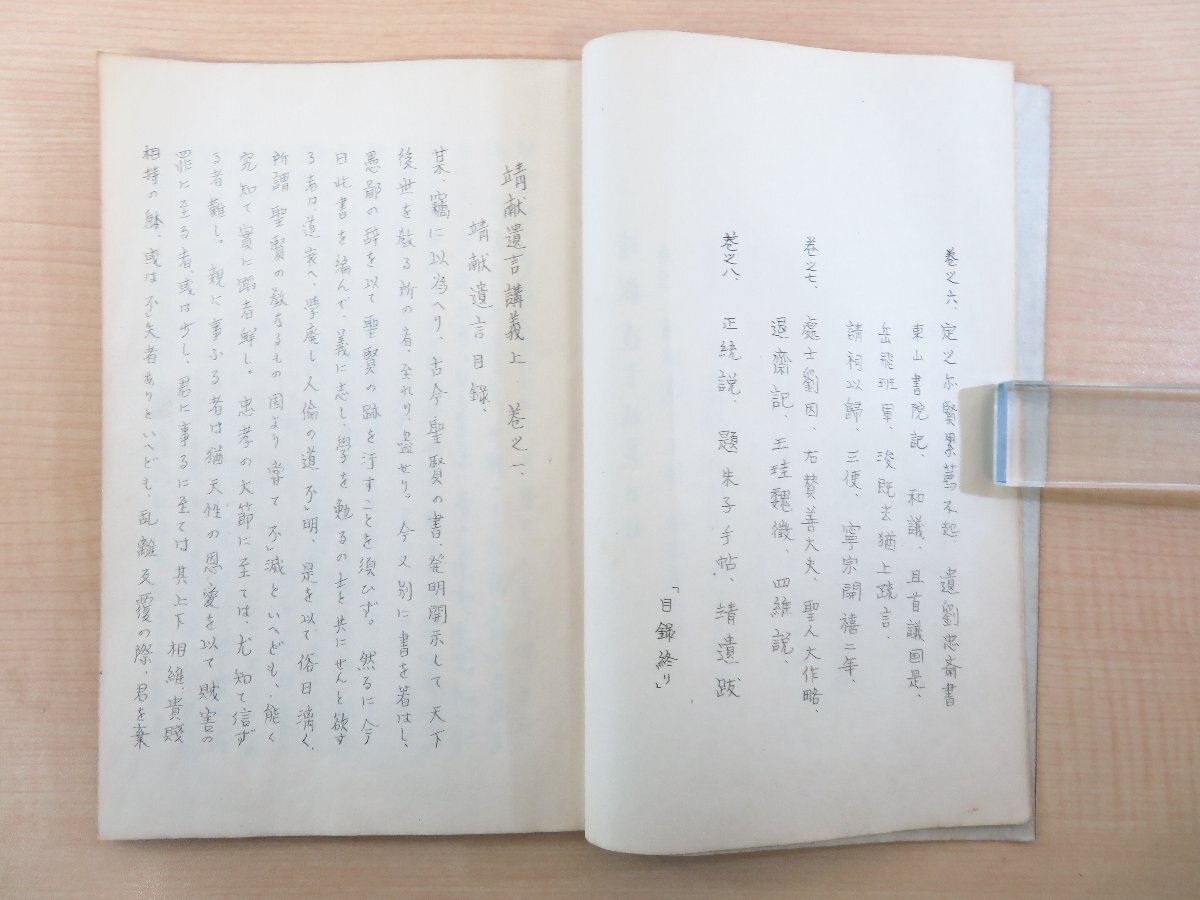 巻之六、定之亦賢累葛不起、遺劉忠斎書
東山書院記、和議、且首議国是、
岳飛班軍、浚既去猶上疏言、
請祠以歸、三使、寧宗開禧二年、
巻之七、處士劉因、右賛善大夫、聖人大作略、
退齋記、王珪魏徴、四維説、
巻之八、正統説、題朱子手帖、靖遺跋
「目録終り」
靖献遺言講義上 巻之一、
靖献遺言目録、
某、竊に以為へり、古今聖賢の書、発明開示して天下
後世を教る所の者、至れり盡せり。今又別に書を著はし、
愚鄙の辞を以て聖賢の跡を汚すことを須ひず。然るに今
日此書を編んで、義に志し、學を勉るの士と共にせんと欲す
る者は道衰へ、學廃し、人倫の道不」明、是を以て俗日漓く、
所謂聖賢の教なるもの固より嘗て不」滅といへども、能く
究知て實に蹈者鮮し。忠孝の大節に至ては、尤知て信ず
る者難し。親に事ふる者は猶天性の恩愛を以て賊害の
罪に至る者、或は少し、君に事るに至ては其上下相維、貴賤
相持の際、或は不」失者ありといへども、乱離反覆の際、君を棄